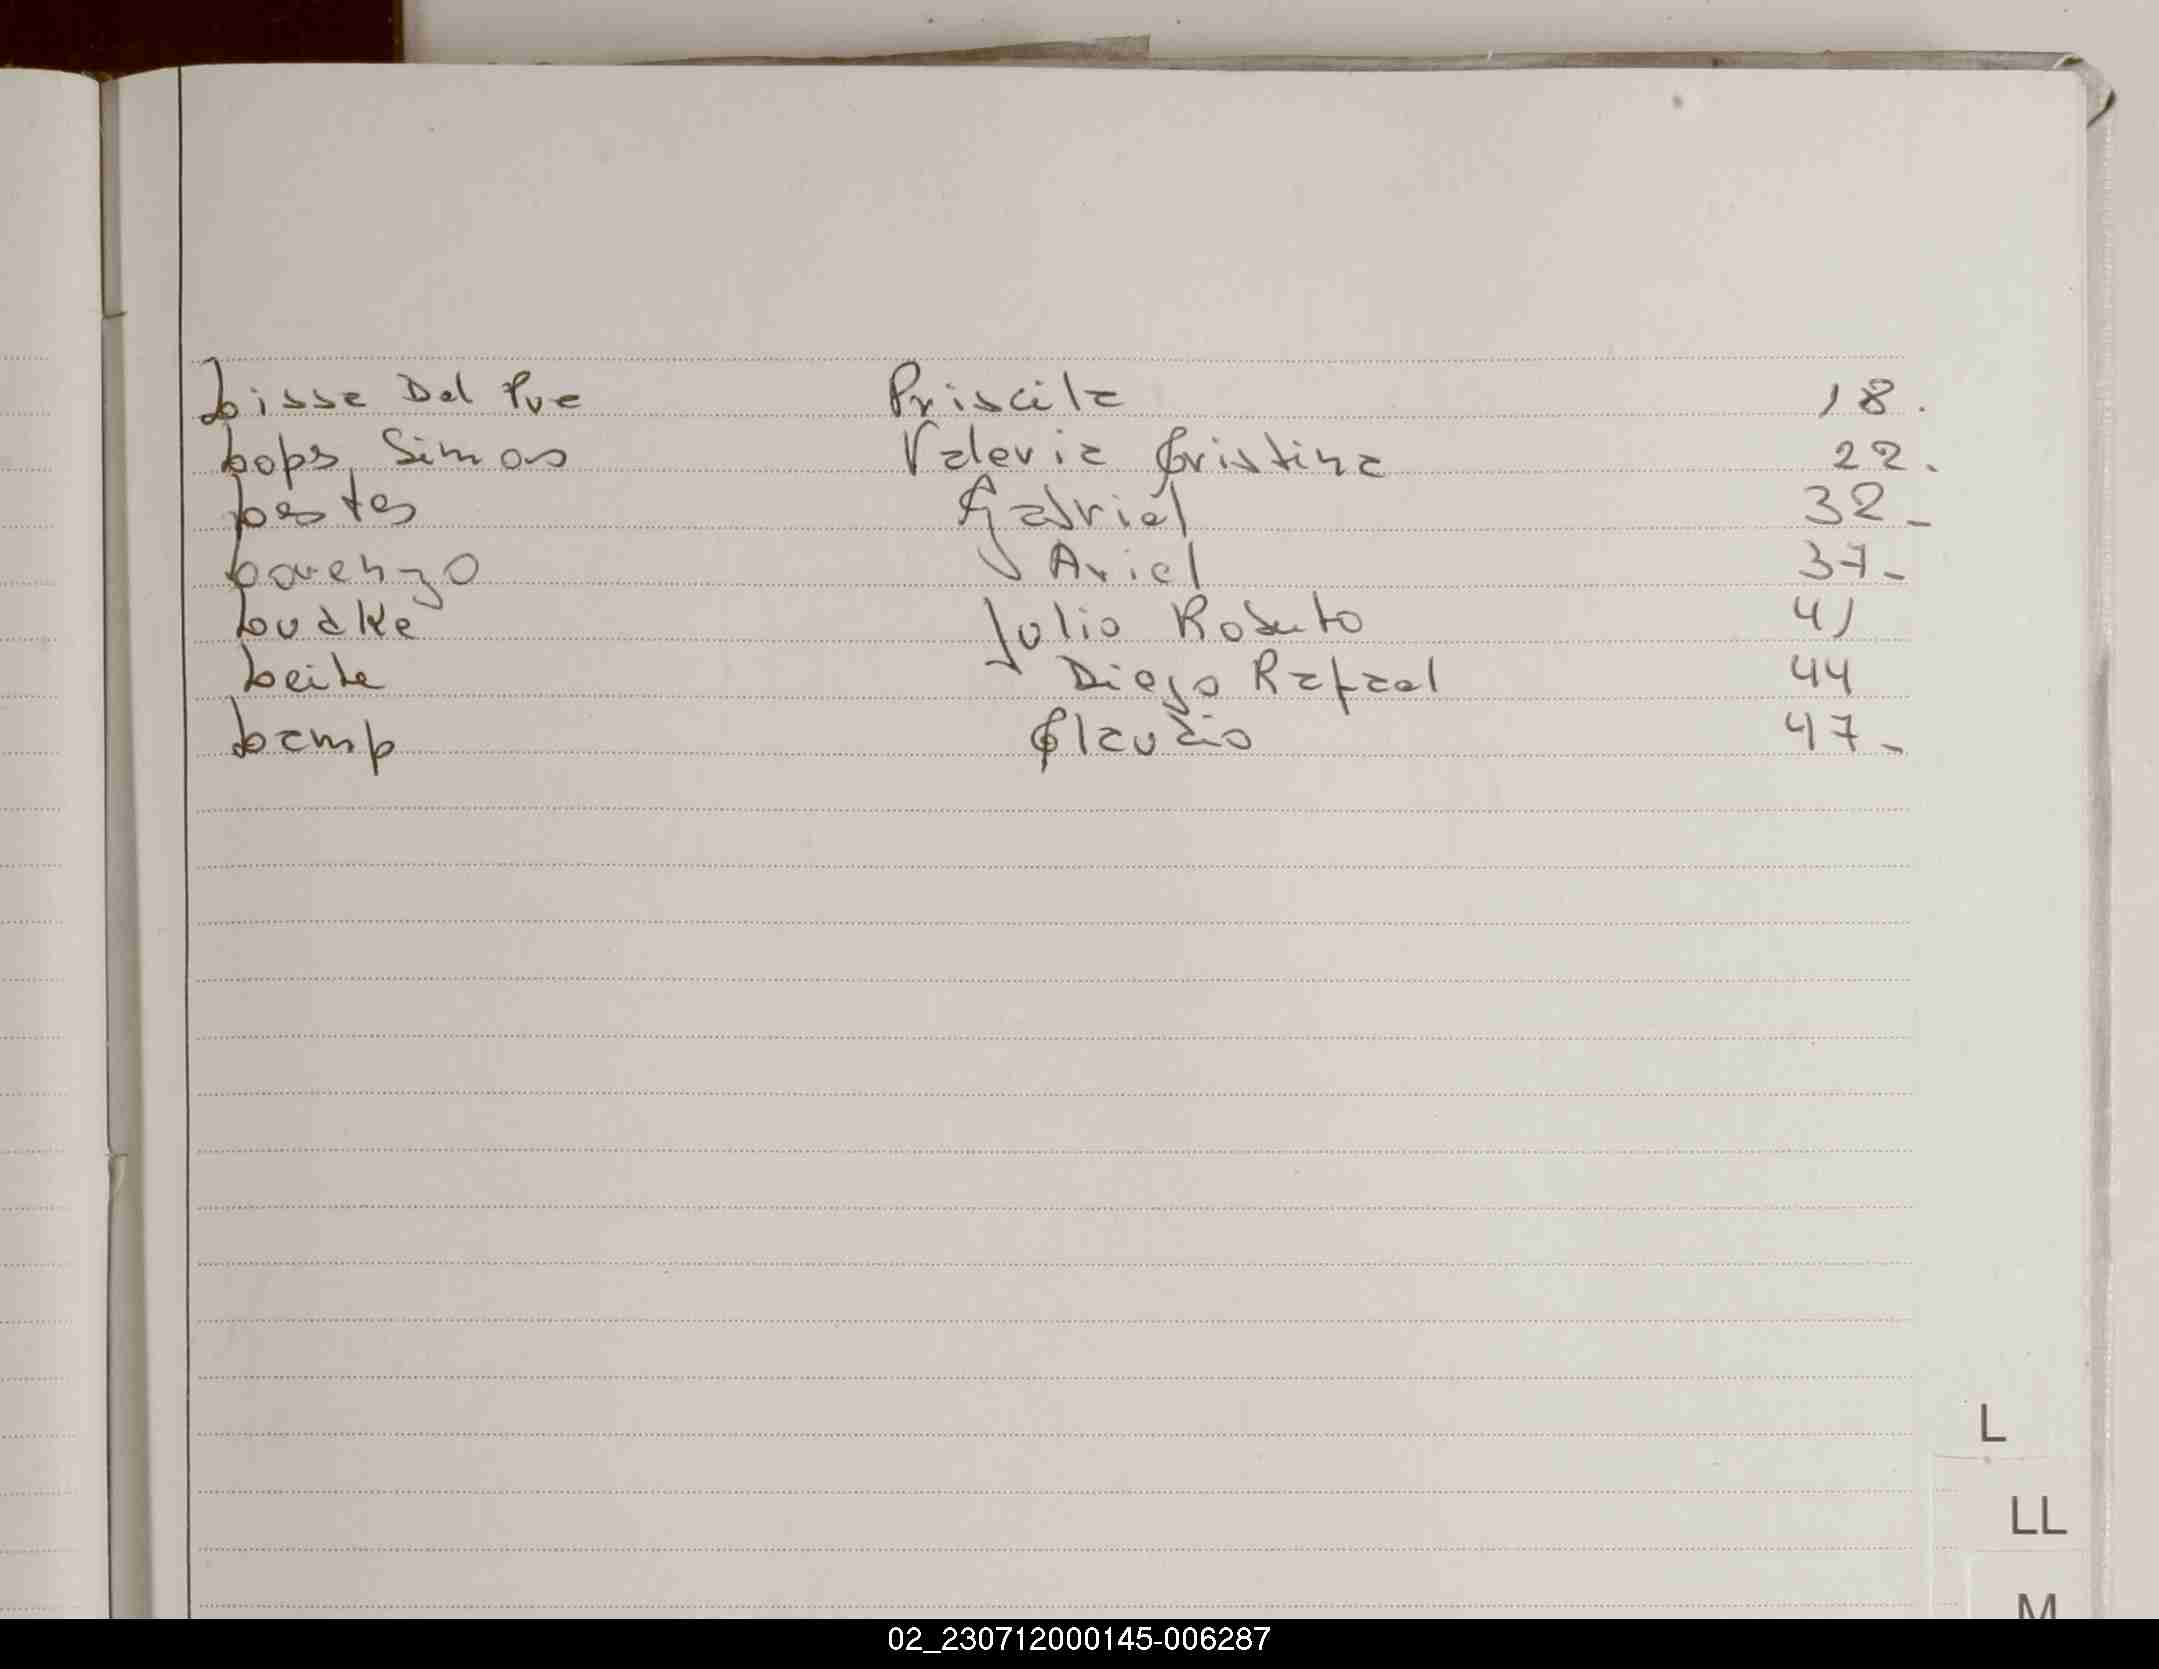 Lissa Del Pue Priscila 18.
Lops, Simos Valeria Cristina 22.
Gabriel 32_
Lorenzo Ariel 37_
Ludke Julio Roberto 41
Leite Diego Rafael 44
Lamp Claudio 47_
L
LL
M
02_230712000145-006287